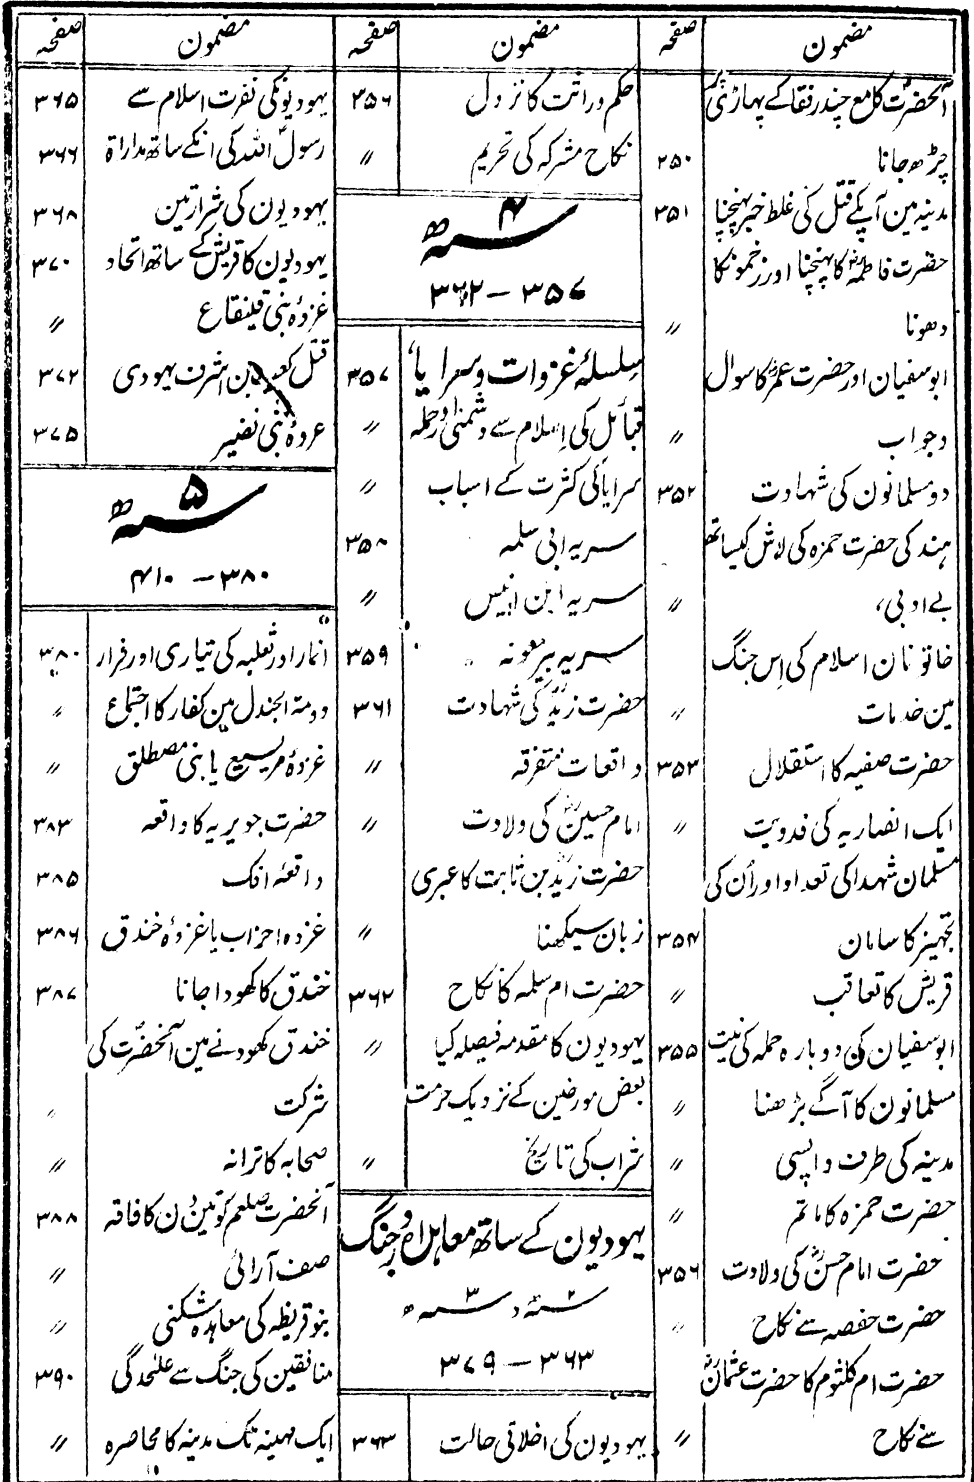 مضمون صفحہ
آنحضرتؐ کا مع چند رفقا کے پہاڑی پر
چڑھ جانا ۲۵۰
مدینہ مین آپکے قتل کی غلط خبر پہنچنا ۳۵۱
حضرت فاطمہؓ کا پہنچنا اور زخمونکا
دھونا 〃
ابوسفیان اور حضرت عمرؓ کا سوال
وجواب 〃
دو مسلمانون کی شہادت ۳۵۲
ہند کی حضرت حمزہ کی لاش کیساتھ
بے ادبی، 〃
خاتونان اسلام کی اِس جنگ
مین خدمات 〃
حضرت صفیہ کا استقلال ۳۵۳
ایک انصاریہ کی فدویت 〃
مسلمان شہدا کی تعداد اور اُن کی
تجہیز کا سامان ۳۵۴
قریش کا تعاقب 〃
ابوسفیان کی دوبارہ حملہ کی نیت ۳۵۵
مسلمانون کا آگے بڑھنا 〃
مدینہ کی طرف واپسی 〃
حضرت حمزہ کا ماتم 〃
حضرت امام حسنؓ کی ولادت ۳۵۶
حضرت حفصہ سے نکاح 〃
حضرت ام کلثوم کا حضرت عثمانؓ
سے نکاح 〃
مضمون صفحہ
حکم وراثت کا نزول ۳۵۶
نکاح مشرکہ کی تحریم 〃
سنہ ۴ ھ
۳۵۷ – ۳۶۲
سلسلۂ غزوات وسرایا، ۳۵۷
قبائل کی اِسلام سے دشمنی اور حملہ 〃
سرایا کی کثرت کے اسباب 〃
سریہ ابی سلمہ ۳۵۸
سریہ ابن انیس 〃
سریہ بیر معونہ ۳۵۹
حضرت زیدؓ کی شہادت ۳۶۱
واقعات متفرقہ 〃
امام حسینؓ کی ولادت 〃
حضرت زیدؓ بن ثابت کا عبری
زبان سیکھنا 〃
حضرت ام سلمہ کا نکاح ۳۶۲
یہودیون کا مقدمہ فیصلہ کیا 〃
بعض مورخین کے نزدیک حرمت
شراب کی تاریخ 〃
یہودیون کے ساتھ معاہدہ اور جنگ
سنہ ۲ و سنہ ۳ ھ
۳۶۳ – ۳۷۹
یہودیون کی اخلاقی حالت ۳۶۳
مضمون صفحہ
یہودیونکی نفرت اسلام سے ۳۶۵
رسولؐ اللہ کی انکے ساتھ مداراۃ ۳۶۶
یہودیون کی شرارتین ۳۶۸
یہودیون کا قریش کے ساتھ اتحاد ۳۷۰
غزوۂ بنی قینقاع 〃
قتل کعب بن اشرف یہودی ۳۷۲
غزوۂ بنی نضیر ۳۷۵
سنہ ۵ ھ
۳۸۰ – ۴۱۰
انمار اور ثعلبہ کی تیاری اور فرار ۳۸۰
دومۃ الجندل مین کفار کا اجتماع 〃
غزوۂ مریسیع یا بنی مصطلق 〃
حضرت جویریہ کا واقعہ ۳۸۳
واقعۂ افک ۳۸۵
غزوہ احزاب یا غزوۂ خندق ۳۸۶
خندق کا کھودا جانا ۳۸۷
خندق کھودنے مین آنحضرتؐ کی
شرکت 〃
صحابہ کا ترانہ 〃
آنحضرت صلعم کو تین دن کا فاقہ ۳۸۸
صف آرائی 〃
بنو قریظہ کی معاہدہ شکنی 〃
منافقین کی جنگ سے علٰحدگی ۳۹۰
ایک مہینہ تک مدینہ کا محاصرہ 〃